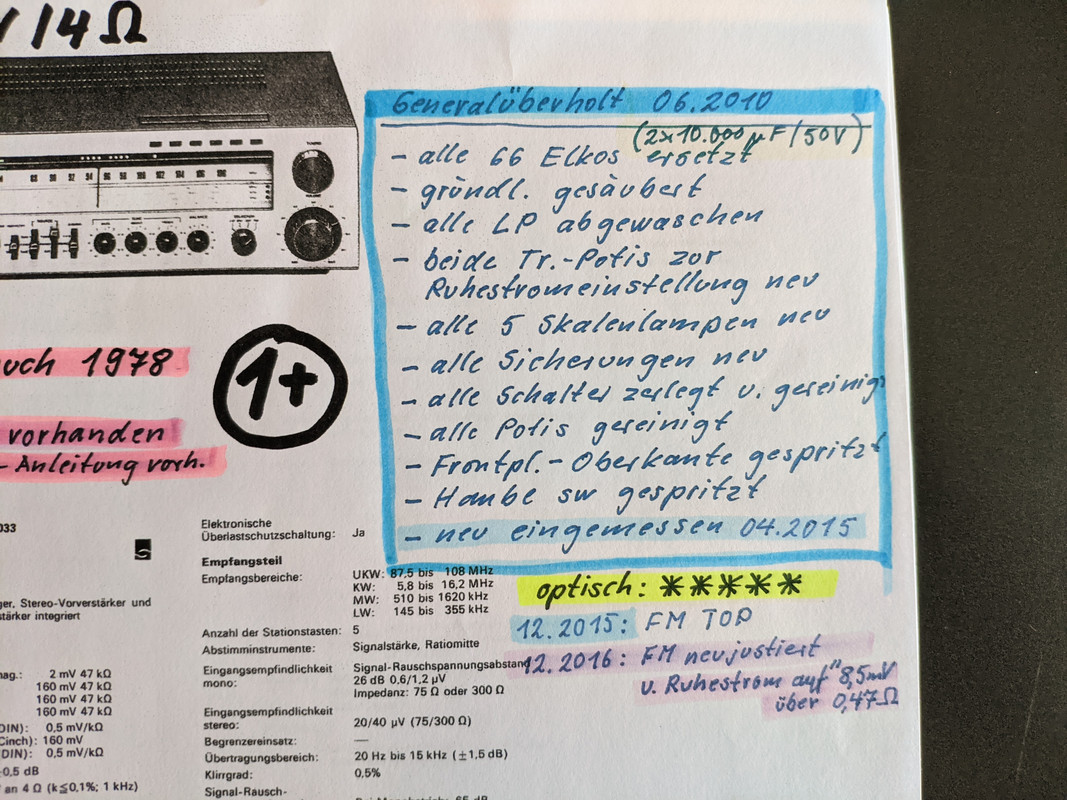 /4 Ω
Generalüberholt 06.2010
(2x10.000 µF/50V)
- alle 66 Elkos ersetzt
- gründl. gesäubert
- alle LP abgewaschen
- beide Tr.-Potis zur
Ruhestromeinstellung neu
- alle 5 Skalenlampen neu
- alle Sicherungen neu
- alle Schalter zerlegt u. gereinigt
- alle Potis gereinigt
- Frontpl.-Oberkante gespritzt
- Haube sw gespritzt
- neu eingemessen 04.2015
uch 1978
1+
vorhanden
-Anleitung vorh.
optisch: *****
12.2015: FM TOP
12.2016: FM neujustiert
u. Ruhestrom auf 8,5mV
über 0,47Ω
033
ger, Stereo-Vorverstärker und
stärker integriert
nag.: 2 mV 47 kΩ
160 mV 47 kΩ
160 mV 47 kΩ
160 mV 47 kΩ
DIN): 0,5 mV/kΩ
Cinch): 160 mV
DIN): 0,5 mV/kΩ
-0,5 dB
an 4 Ω (k≦0,1%; 1 kHz)
Elektronische
Überlastschutzschaltung: Ja
Empfangsteil
Empfangsbereiche: UKW: 87,5 bis 108 MHz
KW: 5,8 bis 16,2 MHz
MW: 510 bis 1620 kHz
LW: 145 bis 355 kHz
Anzahl der Stationstasten: 5
Abstimminstrumente: Signalstärke, Ratiomitte
Eingangsempfindlichkeit Signal-Rauschspannungsabstand
mono: 26 dB 0,6/1,2 µV
Impedanz: 75 Ω oder 300 Ω
Eingangsempfindlichkeit
stereo: 20/40 µV (75/300 Ω)
Begrenzereinsatz: —
Übertragungsbereich: 20 Hz bis 15 kHz (±1,5 dB)
Klirrgrad: 0,5%
Signal-Rausch-